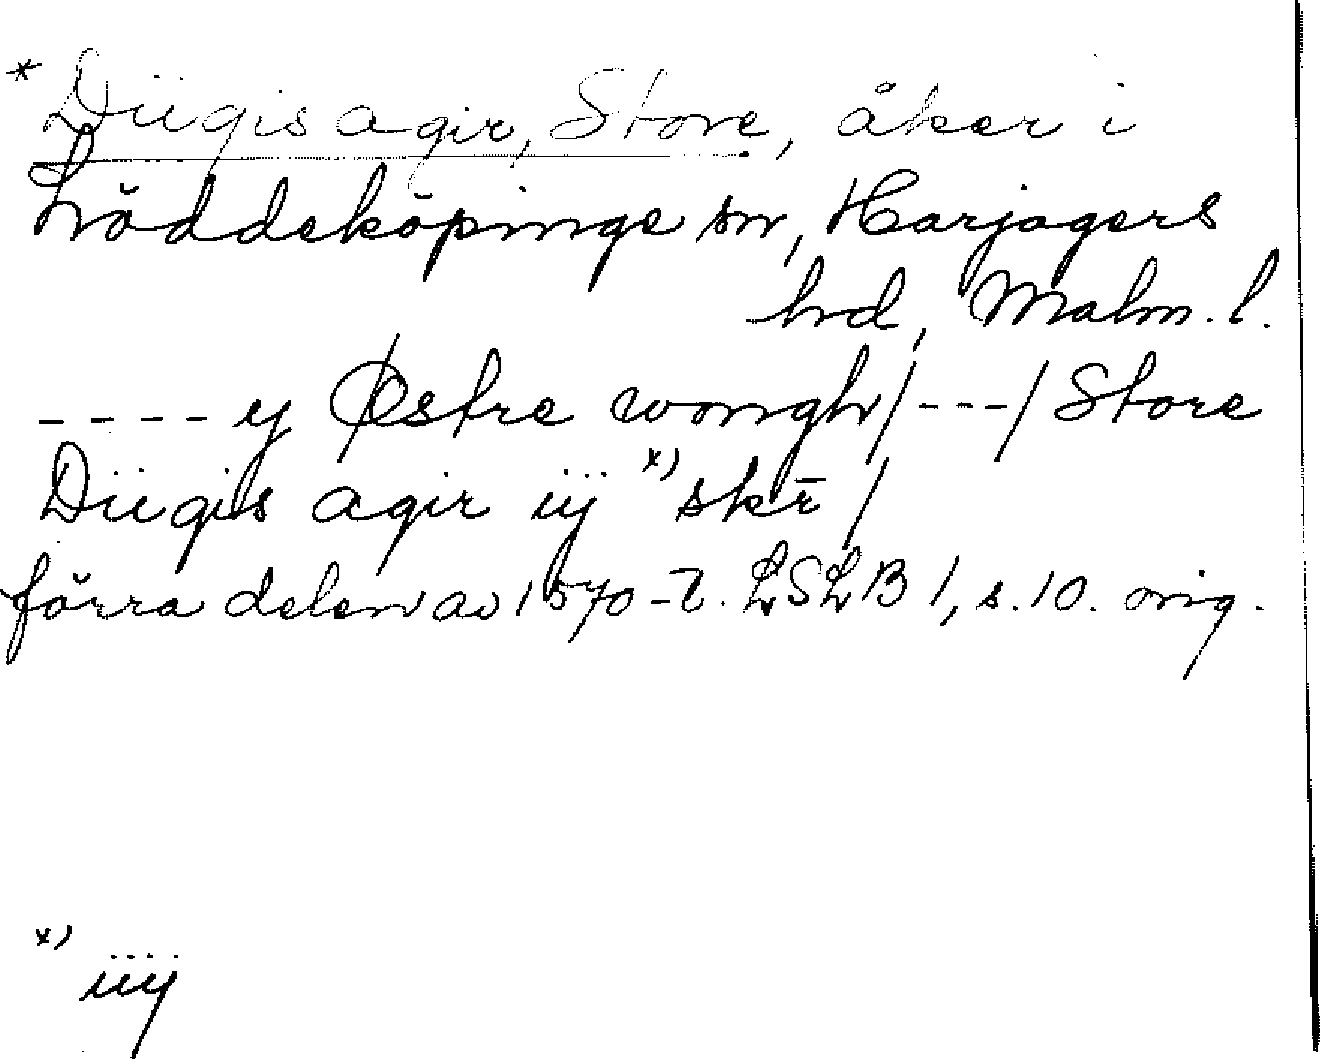 * Diigis agir, Store, åker i
Löddeköpinge sn, Harjagers
hd, Malm. l.
---- y Østre wongh/---/Store
Diigis agir iij x) skr̄ /
förra delen av 1570-t. LSLB 1, s. 10. orig.
x) iiij